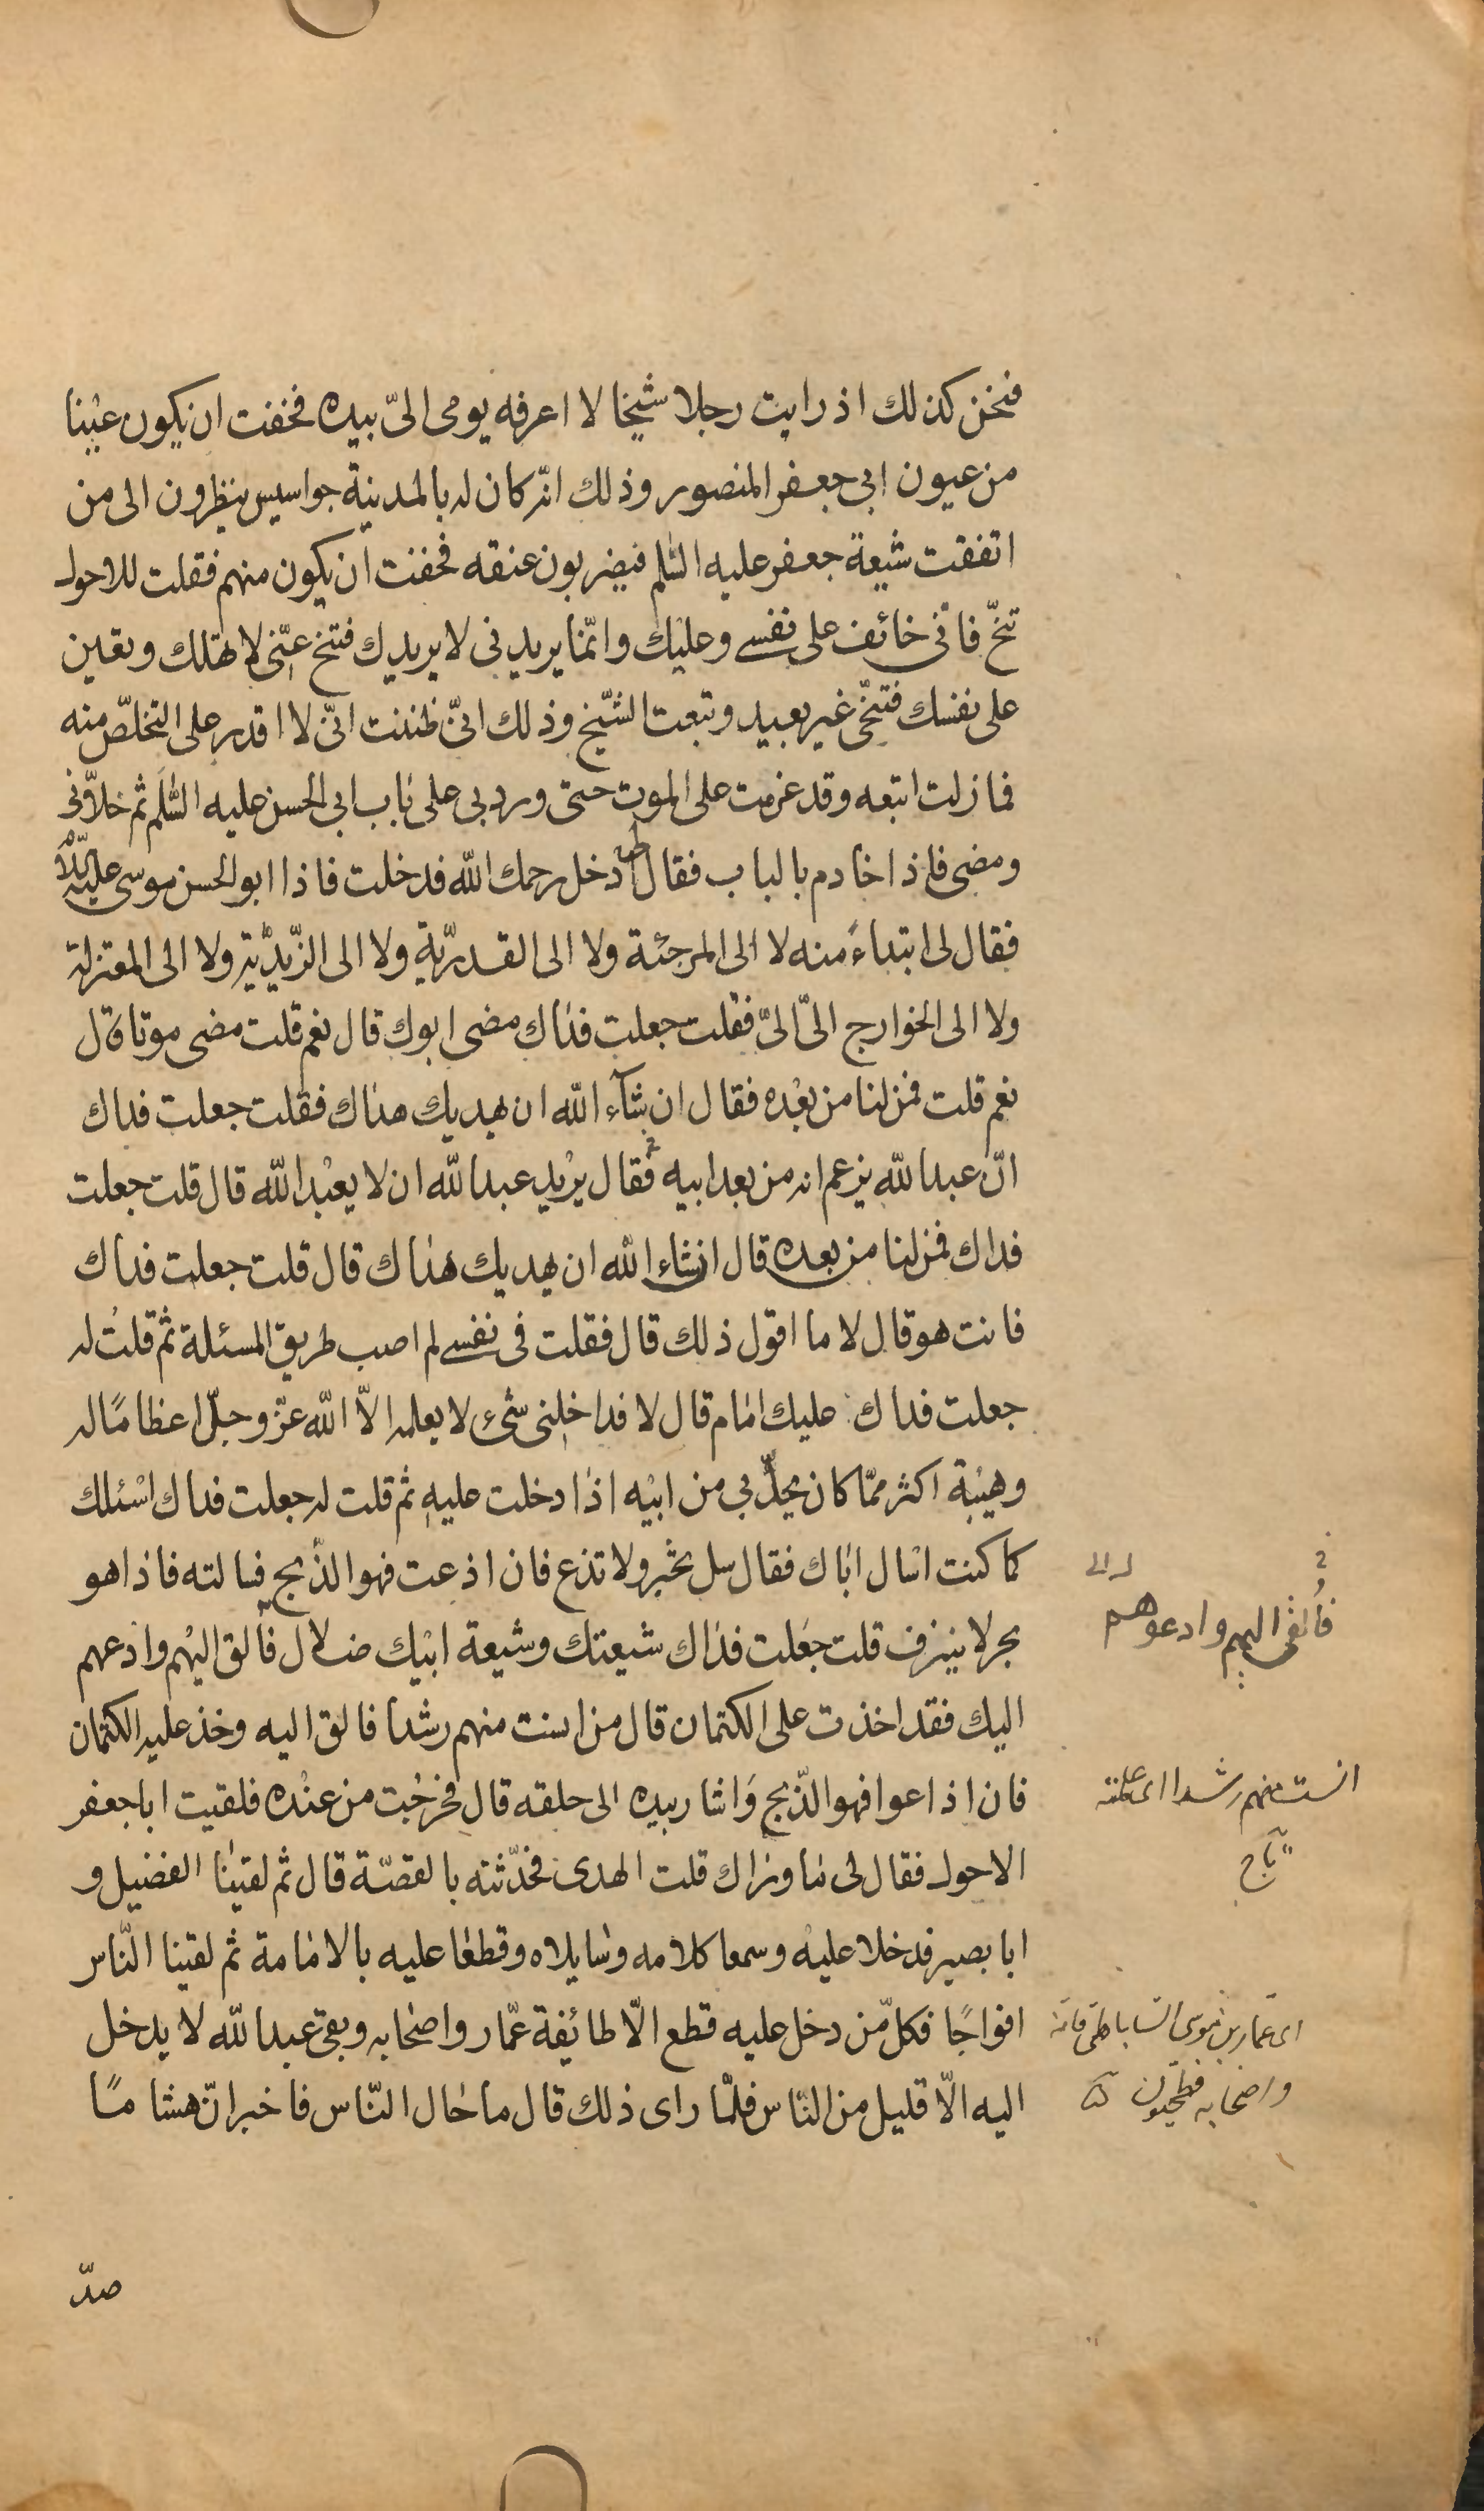 فنحن كذلك اذ رايت رجلا شيخا لا اعرفه يومى الىّ بيده فخفت ان يكون عينا
من عيون ابى جعفر المنصور وذلك انّه كان له بالمدينة جواسيس ينظرون الى من
اتفقت شيعة جعفر عليه السّلم فيضربون عنقه فخفت ان يكون منهم فقلت للاحول
تنحّ فانّى خائف على نفسى وعليك وانّما يريدنى لا يريدك فتنح عنّى لا تهلك وتعين
على نفسك فتنحّى غير بعيد وتبعت الشّيخ وذلك انّى ظننت انّى لا اقدر على التخلّص منه
فما زلت اتبعه وقد عزمت على الموت حتى ورد بى على باب ابى الحسن عليه السّلم ثم خلّانى
ومضى فاذا خادم بالباب فقال لى ادخل رحمك الله فدخلت فاذا ابو الحسن موسى عليه السّلم
فقال لى ابتداءً منه لا الى المرجئة ولا الى القدريّة ولا الى الزّيديّة ولا الى المعتزلة
ولا الى الخوارج الىّ الىّ فقلت جعلت فداك مضى ابوك قال نعم قلت مضى موتا قال
نعم قلت فمن لنا من بعده فقال ان شآء الله ان يهديك هداك فقلت جعلت فداك
انّ عبد الله يزعم انه من بعد ابيه فقال يريد عبد الله ان لا يعبد الله قال قلت جعلت
فداك فمن لنا من بعده قال انشاء الله ان يهديك هداك قال قلت جعلت فداك
فانت هو قال لا ما اقول ذلك قال فقلت فى نفسى لم اصب طريق المسئلة ثم قلت له
جعلت فداك عليك امام قال لا فداخلنى شىء لا يعلمه الّا الله عزّ وجلّ اعظامًا له
وهيبة اكثر ممّا كان يحلّ بى من ابيه اذا دخلت عليه ثم قلت له جعلت فداك اسئلك
كما كنت اسال اباك فقال سل تخبر ولا تذع فان اذعت فهو الذّبح فسالته فاذا هو
بحر لا ينزف قلت جعلت فداك شيعتك وشيعة ابيك ضلال فألق اليهم وادعهم
فألقى اليهم وادعوهم
اليك فقد اخذت على الكتمان قال من انست منهم رشدا فالق اليه وخذ عليه الكتمان
فان اذاعوا فهو الذّبح واشار بيده الى حلقه قال فخرجت من عنده فلقيت ابا جعفر
انست منهم رشدا اى علمته
تاج
الاحول فقال لى ما وراك قلت الهدى فحدّثته بالقصّة قال ثم لقينا الفضيل و
ابا بصير فدخلا عليه وسمعا كلامه وسايلاه وقطعا عليه بالامامة ثم لقينا النّاس
افواجًا فكلّ من دخل عليه قطع الّا طائفة عمّار واصحابه وبقى عبد الله لا يدخل
اى عمّار بن موسى السّاباطى فانّه
اليه الّا قليل من النّاس فلمّا راى ذلك قال ما حال النّاس فاخبر انّ هشامًا
واصحابه فطحيّون
صدّ